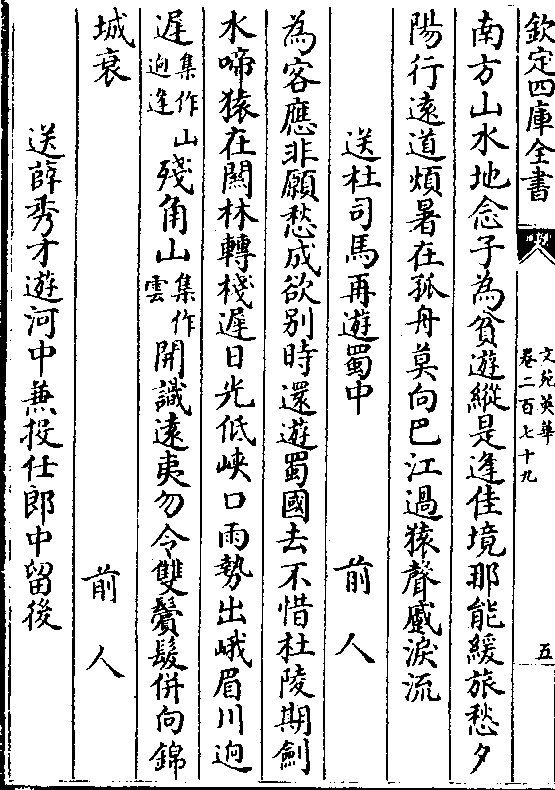 欽定四庫全書
文苑英華
卷二百七十九
五
南方山水地念子為貧遊縱是逢佳境那能緩旅愁夕
陽行遠道煩暑在孤舟莫向巴江過猿聲感淚流
送杜司馬再遊蜀中
前人
為客應非願愁成欲別時還遊蜀國去不惜杜陵期劍
水啼猿在關林轉棧遲日光低峽口雨勢出峨眉川逈
遲集作逈逢山殘角山集作雲開識遠夷勿令雙鬢髮併向錦
城衰
前人
送薛秀才遊河中兼投任郎中留後